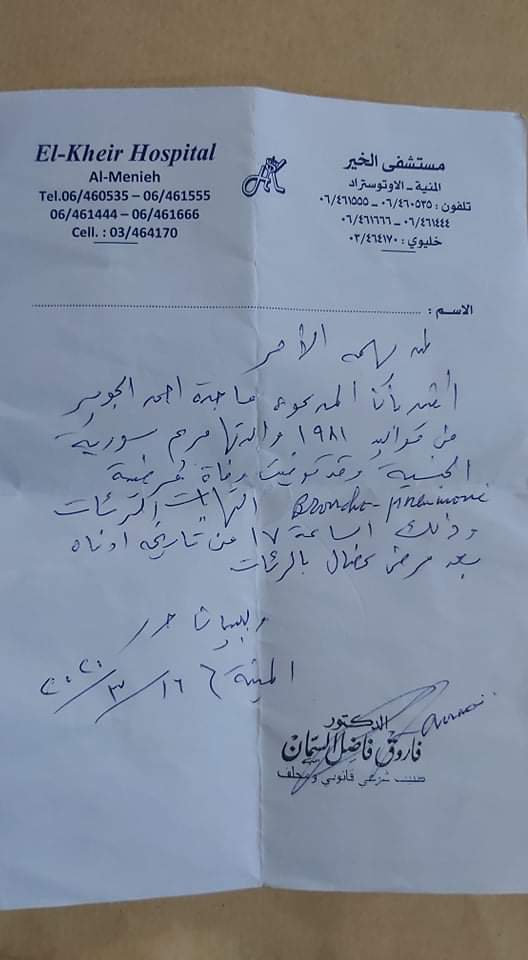 El-Kheir Hospital
Al-Menieh
Tel.06/460535 – 06/461555
06/461444 – 06/461666
Cell. : 03/464170
مستشفى الخير
المنية - الاوتوستراد
تلفون : ٠٦/٤٦٠٥٣٥ - ٠٦/٤٦١٥٥٥
٠٦/٤٦١٤٤٤ - ٠٦/٤٦١٦٦٦
خليوي : ٠٣/٤٦٤١٧٠
الاسم :
لمن يهمه الأمر
بأن المدعوة ماجدة احمد
من مواليد ١٩٨١ والدتها مريم سورية
الجنسية وقد توفيت وفاة مرضية
Broncho-pneumonie التهابات الرئات
وذلك الساعة ١٧ من تاريخه ادناه
بعد مرض عضال بالرئات
وللبيان حرر
المنية في ١٦/٣/٢٠٢٠
الدكتور
فاروق فاضل السمان
طبيب شرعي قانوني ومحلف